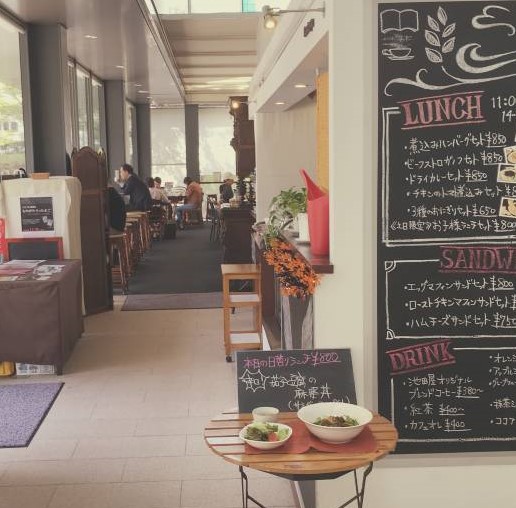 LUNCH 11:00
14
・煮込みハンバーグセット ¥850
・ビーフストロガノフセット ¥850
・ドライカレーセット ¥850
・チキンのトマト煮込みセット
・3種のおにぎりセット ¥650
お子様ランチセット ¥800
SANDW
・エッグマフィンサンドセット ¥800
・ローストチキンマフィンサンドセット
・ハムチーズサンドセット ¥750
DRINK
・池田屋オリジナル
ブレンドコーヒー ¥380〜
・紅茶 ¥400〜
・カフェオレ ¥400
・オレン
・アップル
・抹茶
・ココア
本日の日替りランチ ¥800
茄子と豆腐の
麻婆丼